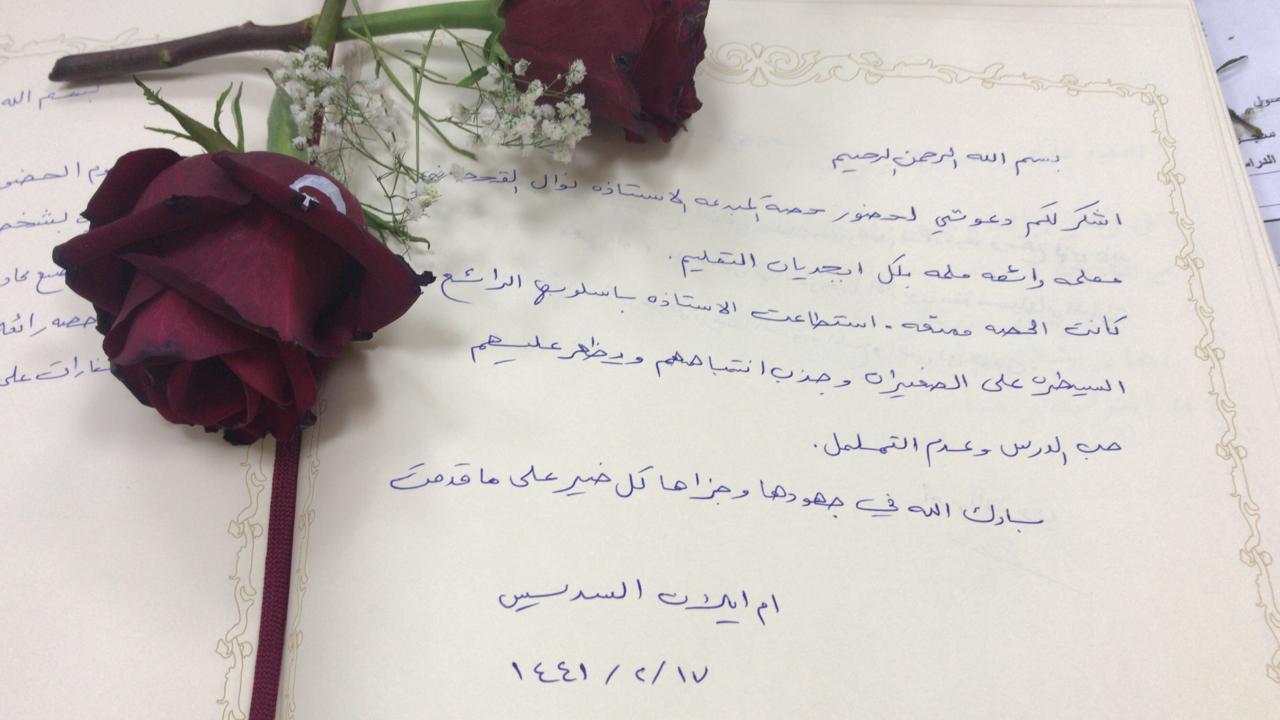 بسم الله الرحمن الرحيم
اشكر لكم دعوتي لحضور حصة المبدعه الاستاذه نوال
معلمه رائعه ملمه بكل ابجديات التعليم.
كانت الحصه ممتعه. استطاعت الاستاذه باسلوبها الرائع
السيطره على الصغيرات وجذب انتباههم ويظهر عليهم
حب الدرس وعدم التململ.
بارك الله في جهودها وجزاها كل خير على ما قدمت
ام ايلان السديس
١٤٤١ / ٢ / ١٧
بسم الله
الحضو
بشخص
حصه رائعه
على